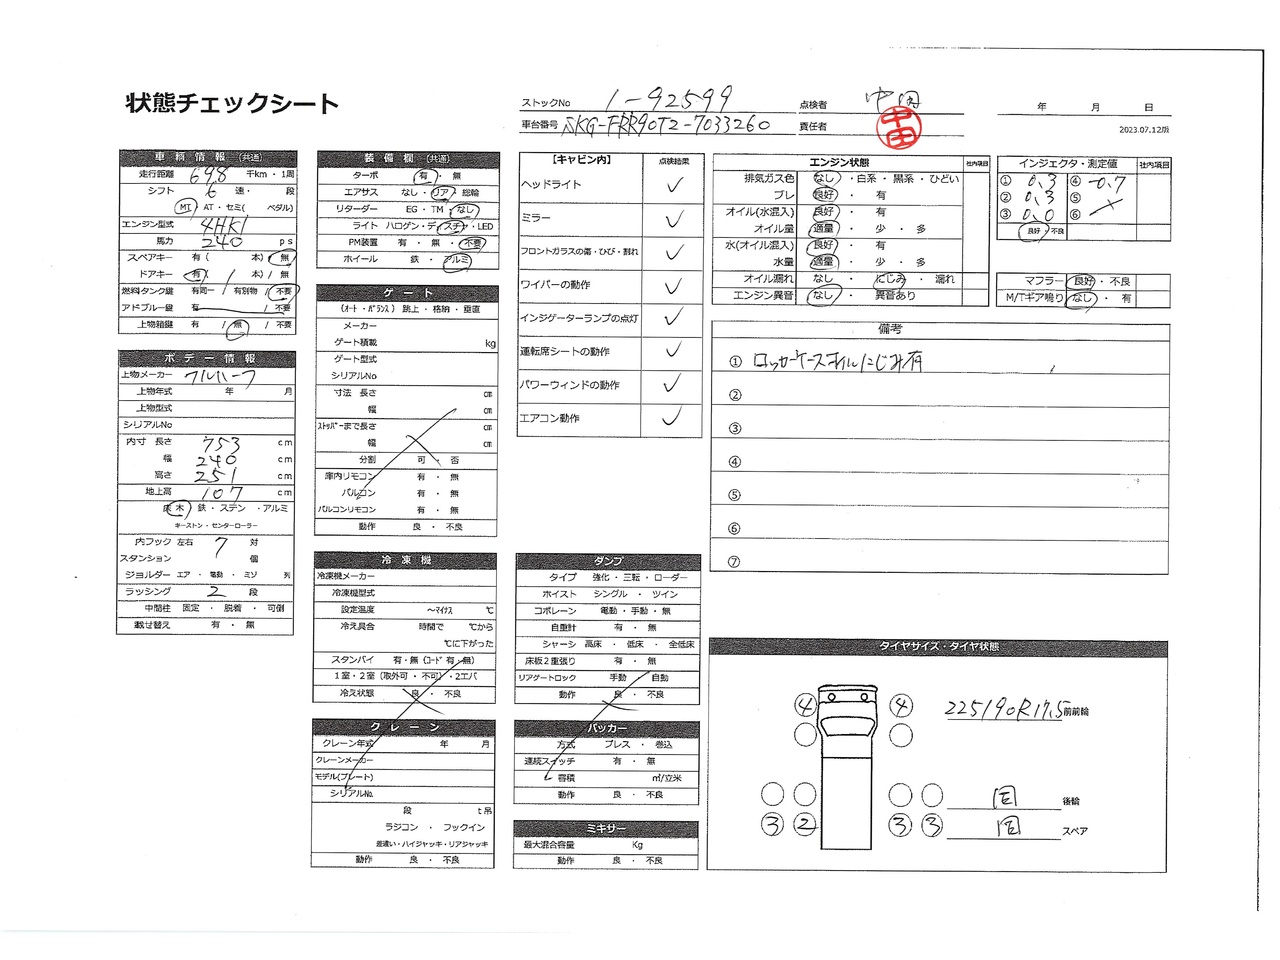 状態チェックシート
ストックNo 1-92599
点検者 中田
年 月 日
車台番号 SKG-FRR90T2-7033260
責任者
中田
2023.07.12版
車輌情報 (共通)
走行距離 698 千km・1周
シフト 6 速・ 段
MT AT・セミ( ペダル)
エンジン型式 4HK1
馬力 240 ps
スペアキー 有( 本) 無
ドアキー 有 本) / 無
燃料タンク鍵 有同一 / 有別物 / 不要
アドブルー鍵 有 / 不要
上物箱鍵 有 / 無 / 不要
ボデー情報
上物メーカー フルハーフ
上物年式 年 月
上物型式
シリアルNo
内寸 長さ 753 cm
幅 240 cm
高さ 251 cm
地上高 107 cm
床 木 鉄・ステン ・アルミ
キーストン・センターローラー
内フック 左右 7 対
スタンション 個
ジョルダー エア ・ 電動 ・ ミゾ 列
ラッシング 2 段
中間柱 固定 ・ 脱着 ・ 可倒
載せ替え 有 ・ 無
装備欄 (共通)
ターボ 有 ・ 無
エアサス なし ・リア・ 総輪
リターダー EG ・TM ・なし
ライト ハロゲン・ディスチャ・LED
PM装置 有 ・ 無 ・ 不要
ホイール 鉄 ・ アルミ
ゲート
(オート・バランス) 跳上 ・ 格納 ・ 垂直
メーカー
ゲート積載 kg
ゲート型式
シリアルNo
寸法 長さ cm
幅 cm
ストッパーまで長さ cm
幅 cm
分割 可 ・ 否
庫内リモコン 有 ・ 無
バルコン 有 ・ 無
バルコンリモコン 有 ・ 無
動作 良 ・ 不良
冷凍機
冷凍機メーカー
冷凍機型式
設定温度 ~マイナス ℃
冷え具合 時間で ℃から
℃に下がった
スタンバイ 有・無 (コード 有・無)
1室・2室 (取外可 ・ 不可)・2エバ
冷え状態 良 ・ 不良
クレーン
クレーン年式 年 月
クレーンメーカー
モデル(プレート)
シリアルNo.
段 t吊
ラジコン ・ フックイン
差違い・ハイジャッキ・リアジャッキ
動作 良 ・ 不良
【キャビン内】 点検結果
ヘッドライト ✓
ミラー ✓
フロントガラスの傷・ひび・割れ ✓
ワイパーの動作 ✓
インジゲーターランプの点灯 ✓
運転席シートの動作 ✓
パワーウィンドの動作 ✓
エアコン動作 ✓
ダンプ
タイプ 強化 ・ 三転 ・ ローダー
ホイスト シングル ・ ツイン
コボレーン 電動 ・ 手動 ・ 無
自重計 有 ・ 無
シャーシ 高床 ・ 低床 ・ 全低床
床板2重張り 有 ・ 無
リアゲートロック 手動 ・ 自動
動作 良 ・ 不良
パッカー
方式 プレス ・ 巻込
連続スイッチ 有 ・ 無
容積 ㎥/立米
動作 良 ・ 不良
ミキサー
最大混合容量 Kg
動作 良 ・ 不良
エンジン状態 社内項目
排気ガス色 なし ・白系 ・ 黒系 ・ ひどい
ブレ 良好 ・ 有
オイル(水混入) 良好 ・ 有
オイル量 適量 ・ 少 ・ 多
水(オイル混入) 良好 ・ 有
水量 適量 ・ 少 ・ 多
オイル漏れ なし ・ にじみ ・ 漏れ
エンジン異音 なし ・ 異音あり
インジェクタ・測定値 社内項目
① 0.3 ④ -0.7
② 0.3 ⑤
③ 0.0 ⑥
良好・不良
マフラー 良好・不良
M/Tギア鳴り なし ・ 有
備考
① ロッカーケースオイルにじみ有
②
③
④
⑤
⑥
⑦
タイヤサイズ・タイヤ状態
④ ④ 225/90R17.5 前前輪
同 後輪
③ ② ③ ③ 同 スペア